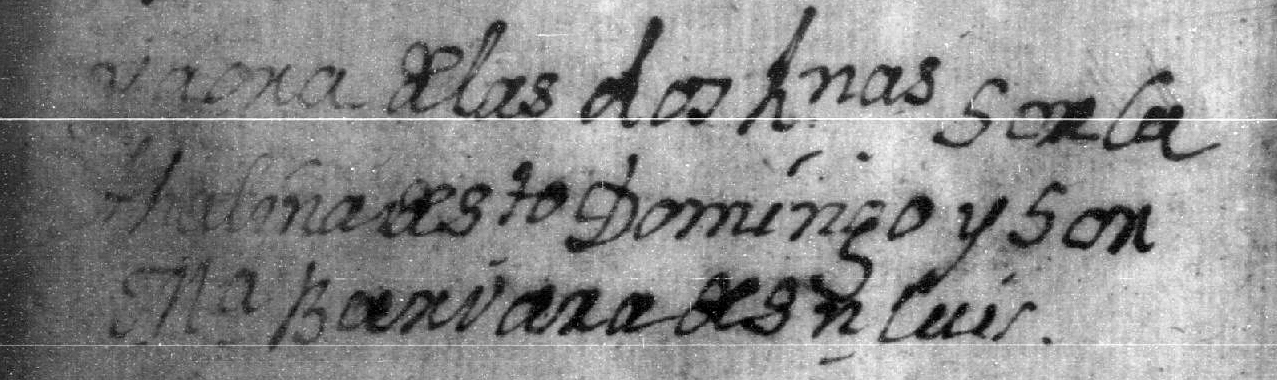 y aora delas dos hnas Sor Ca
thalina de sto Domingo y Sor
Ma Barvara de sn Luis.